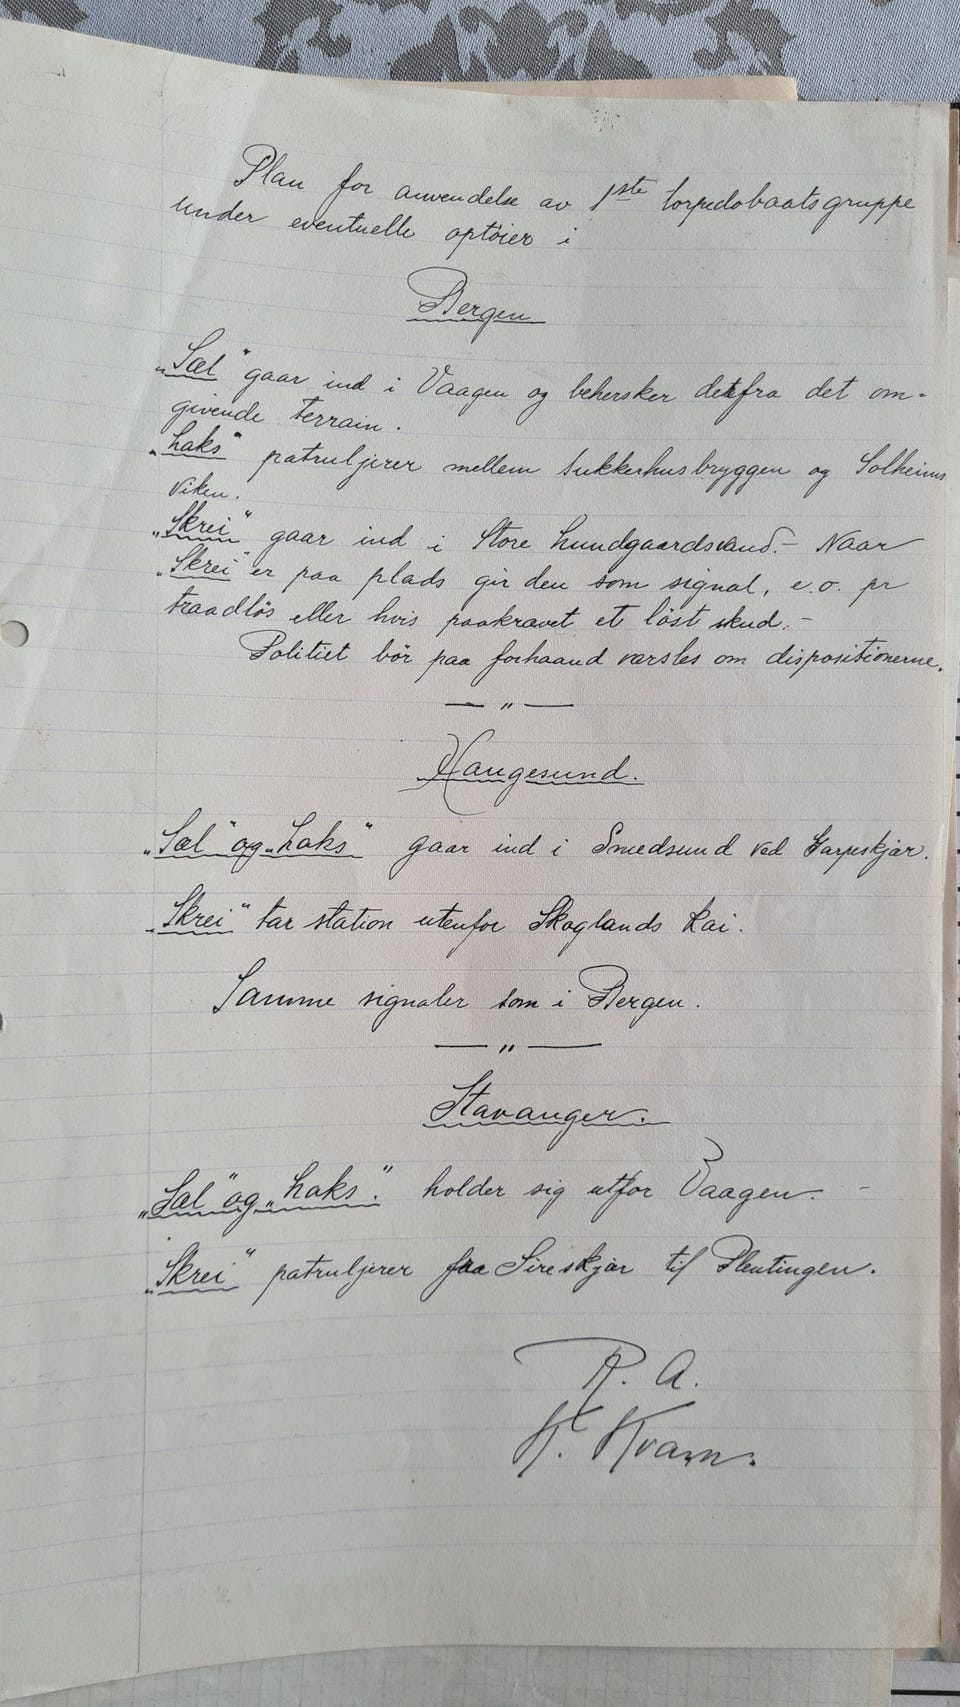 Plan for anvendelse av 1ste torpedobaatsgruppe
under eventuelle optöier i
Bergen
„Sæl" gaar ind i Vaagen og behersker detfra det om-
givende terrain.
„Laks" patruljerer mellem Sukkerhusbryggen og Solheims
viken.
„Skrei" gaar ind i Store Lundgaardsvand.- Naar
„Skrei" er paa plads gir den som signal, e.o. pr
traadlös eller hvis paakrævet et löst skud.-
Politiet bör paa forhaand varsles om dispositionerne.
— " —
Haugesund.
„Sæl" og „Laks" gaar ind i Smedsund ved Garpeskjær.
„Skrei" tar station utenfor Skoglands kai.
Samme signaler som i Bergen.
— " —
Stavanger.
„Sæl" og „Laks". holder sig utfor Vaagen. -
„Skrei" patruljerer fra Sireskjær til Plentingen.
R. A.
K. Kvam.